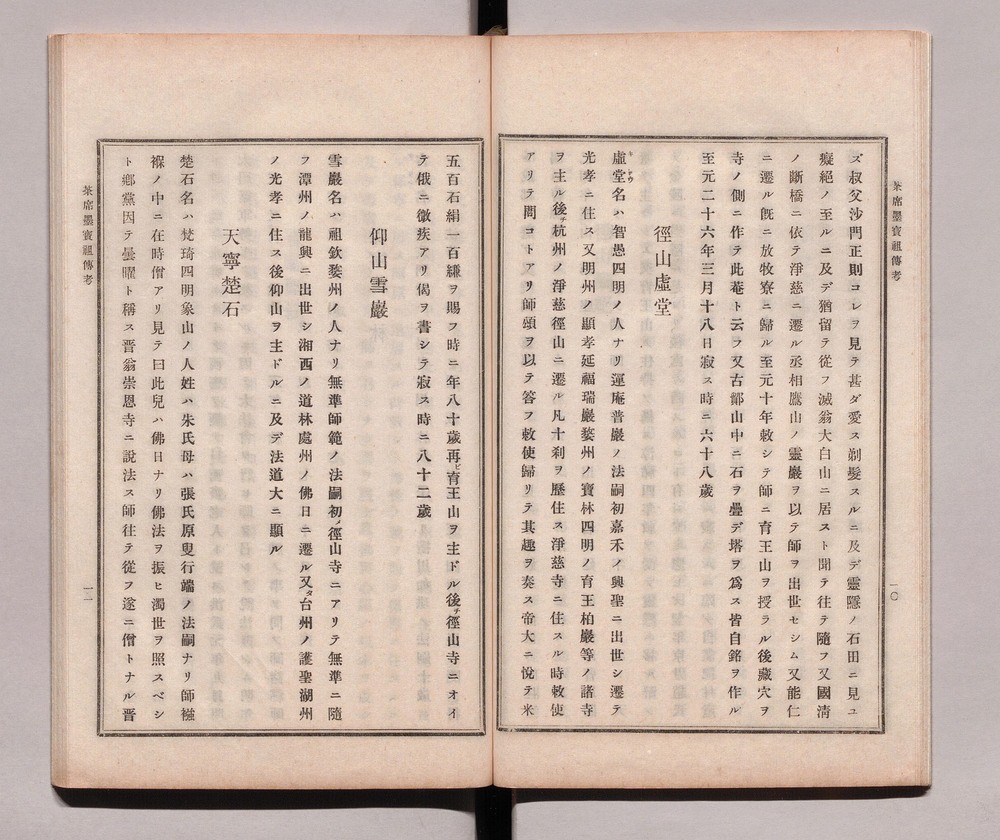 茶席墨寳祖傳考
一〇
ズ叔父沙門正則コレヲ見テ甚ダ愛ス剃髮スルニ及デ靈隱ノ石田ニ見ユ
癡絕ノ至ルニ及デ猶留テ從フ滅翁大白山ニ居スト聞テ往テ隨フ又國淸
ノ斷橋ニ依テ淨慈ニ遷ル丞相鷹山ノ靈巖ヲ以テ師ヲ出世セシム又能仁
ニ遷ル旣ニ放牧寮ニ歸ル至元十年敕シテ師ニ育王山ヲ授ラル後藏穴ヲ
寺ノ側ニ作テ此菴ト云フ又古鄮山中ニ石ヲ疊デ塔ヲ爲ス皆自銘ヲ作ル
至元二十六年三月十八日寂ス時ニ六十八歲
徑山虛堂
虛堂名ハ智愚四明ノ人ナリ運庵普巖ノ法嗣初嘉禾ノ興聖ニ出世シ遷テ
光孝ニ住ス又明州ノ顯孝延福瑞巖婺州ノ寶林四明ノ育王柏巖等ノ諸寺
ヲ主ル後チ杭州ノ淨慈徑山ニ遷ル凡十刹ヲ歷住ス淨慈寺ニ住スル時敕使
アリテ問コトアリ師頌ヲ以テ答フ敕使歸リテ其趣ヲ奏ス帝大ニ悅テ米
五百石絹一百縑ヲ賜フ時ニ年八十歲再ビ育王山ヲ主ドル後チ徑山寺ニオイ
テ俄ニ微疾アリ偈ヲ書シテ寂ス時ニ八十二歲
仰山雪巖
雪巖名ハ祖欽婺州ノ人ナリ無準師範ノ法嗣初メ徑山寺ニアリテ無準ニ隨
フ潭州ノ龍興ニ出世シ湘西ノ道林處州ノ佛日ニ遷ル又タ台州ノ護聖湖州
ノ光孝ニ住ス後仰山ヲ主ドルニ及デ法道大ニ顯ル
天寧楚石
楚石名ハ梵琦四明象山ノ人姓ハ朱氏母ハ張氏原叟行端ノ法嗣ナリ師襁
褓ノ中ニ在時僧アリ見テ曰此兒ハ佛日ナリ佛法ヲ振ヒ濁世ヲ照スベシ
ト鄕黨因テ曇曜ト稱ス晋翁崇恩寺ニ說法ス師往テ從フ遂ニ僧トナル晋
茶席墨寳祖傳考
一一